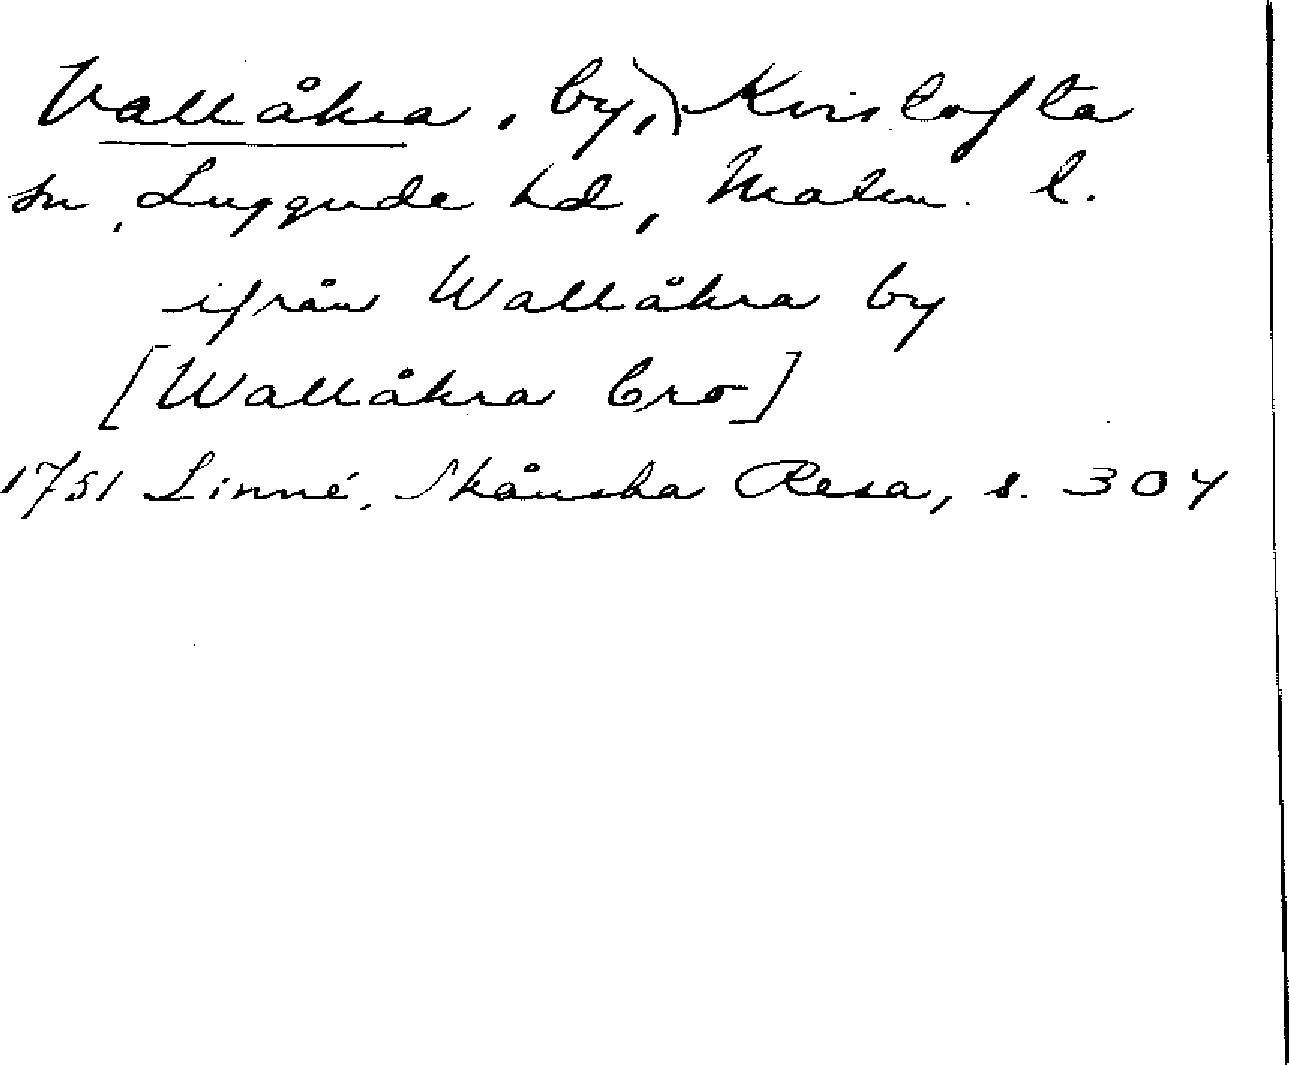 Vallåkra, by,) Kvistofta
sn, Luggude hd, Malm. l.
ifrån Wallåkra by
[Wallåkra bro]
1751 Linné, Skånska Resa, s. 304